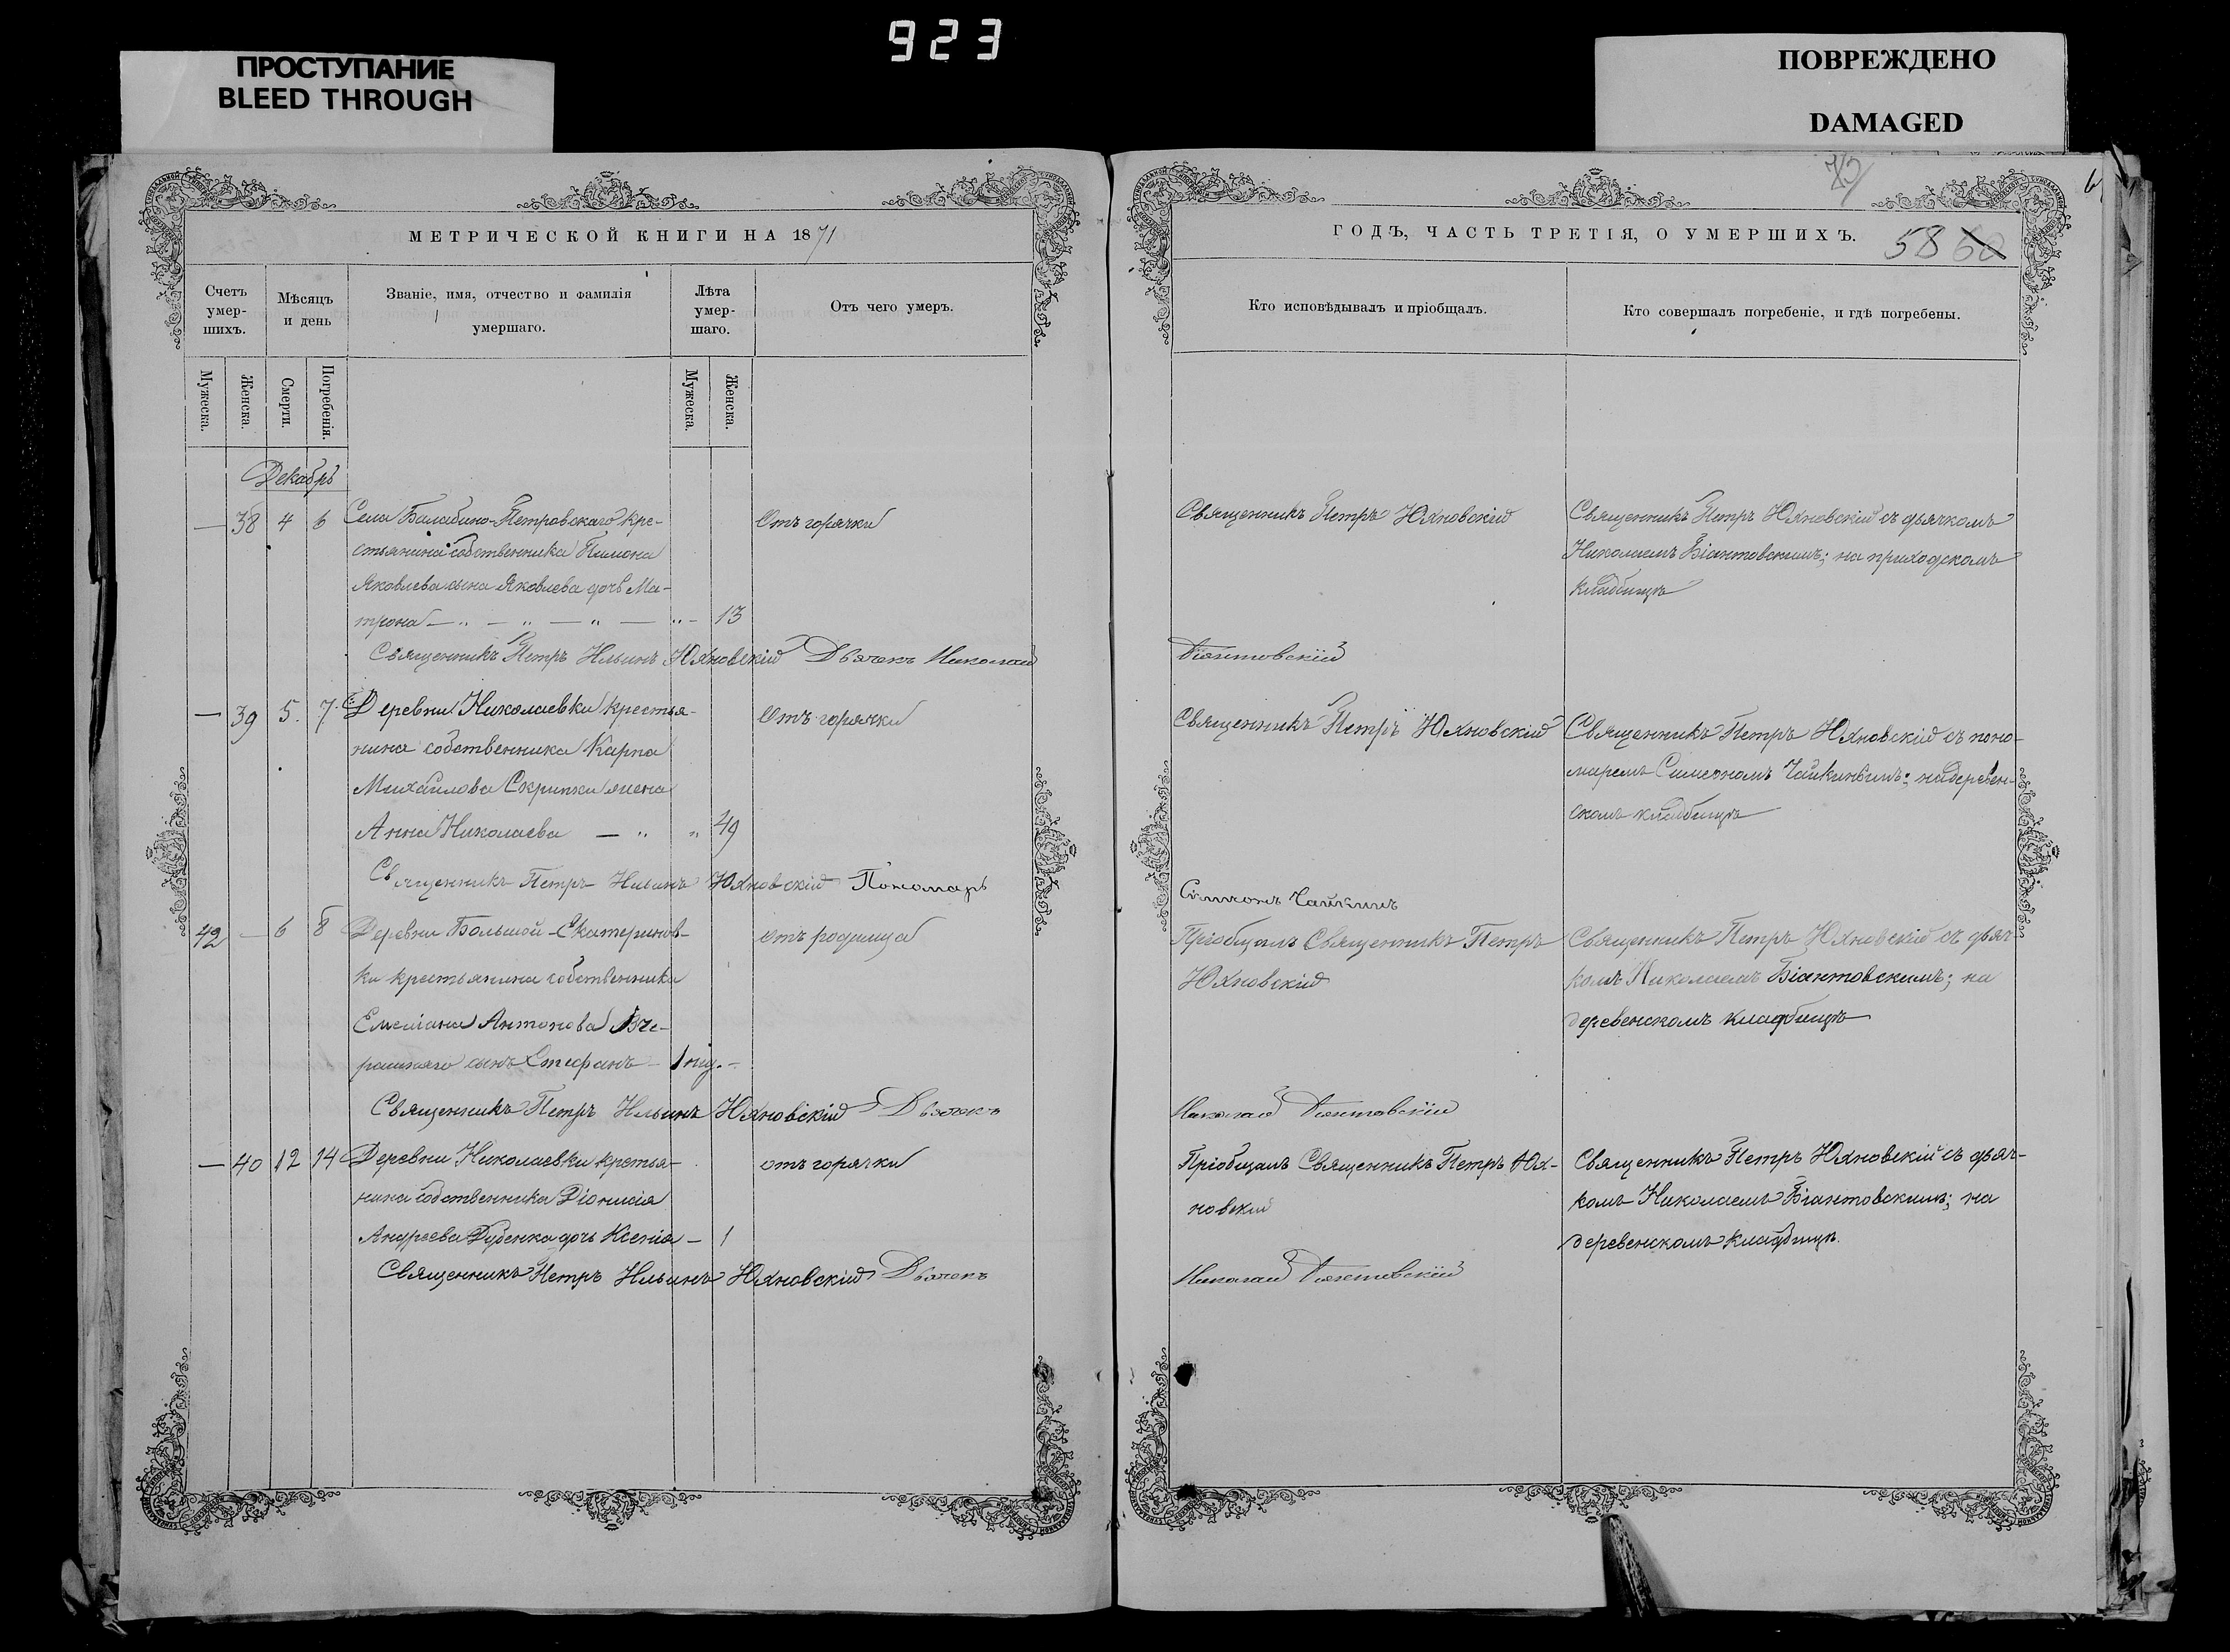 923
ПРОСТУПАНИЕ
BLEED THROUGH
ПОВРЕЖДЕНО
DAMAGED
МЕТРИЧЕСКОЙ КНИГИ НА 1871
Счетъ умер-шихъ.
Мѣсяцъ и день
Званіе, имя, отчество и фамилія умершаго.
Лѣта умер-шаго.
Отъ чего умеръ.
Мужеска.
Женска.
Смерти.
Погребенія.
Мужеска.
Женска.
Декабрь
— 38 4 6 Села Балабино-Петровскаго кре-
Отъ горячки
стьянина собственника Пимона
Яковлева сына Яковлева дочь Ма-
трона — „ — „ — „ — „ - 13
Священникъ Петръ Ильинъ Юхновскій Дьячекъ Николай
— 39 5. 7. Деревни Николаевки крестья-
Отъ горячки
нина собственника Карпа
Михайлова Скрипки жена
Анна Николаева — „ „ 49
Священникъ Петръ Ильинъ Юхновскій Пономарь
42 — 6 8 Деревни Большой-Екатеринов-
отъ родимца
ки крестьянина собственника
Емеліана Антонова Вче-
рашняго сынъ Стефанъ - 1 нед. -
Священникъ Петръ Ильинъ Юхновскій Дьячекъ
— 40 12 14 Деревни Николаевки кретья-
отъ горячки
нина собственника Діонисія
Андреева Дубенка дочь Ксенія - 1
Священникъ Петръ Ильинъ Юхновскій Дьячекъ
ГОДЪ, ЧАСТЬ ТРЕТІЯ, О УМЕРШИХЪ.
58 60
Кто исповѣдывалъ и пріобщалъ.
Кто совершалъ погребеніе, и гдѣ погребены.
Священникъ Петръ Юхновскій
Священникъ Петръ Юхновскій съ дьячкомъ
Николаемъ Біантовскимъ; на приходскомъ
кладбищѣ
Біантовскій
Священникъ Петръ Юхновскій
Священникъ Петръ Юхновскій съ поно-
маремъ Симеономъ Чайкинымъ; на деревен-
скомъ кладбищѣ
Симеонъ Чайкинъ
Пріобщалъ Священникъ Петръ
Юхновскій
Священникъ Петръ Юхновскій съ дьяч-
комъ Николаемъ Біантовскимъ; на
деревенскомъ кладбищѣ
Николай Біантовскій
Пріобщалъ Священникъ Петръ Юх-
новскій
Священникъ Петръ Юхновскій съ дьяч-
комъ Николаемъ Біантовскимъ; на
деревенскомъ кладбищѣ.
Николай Біантовскій